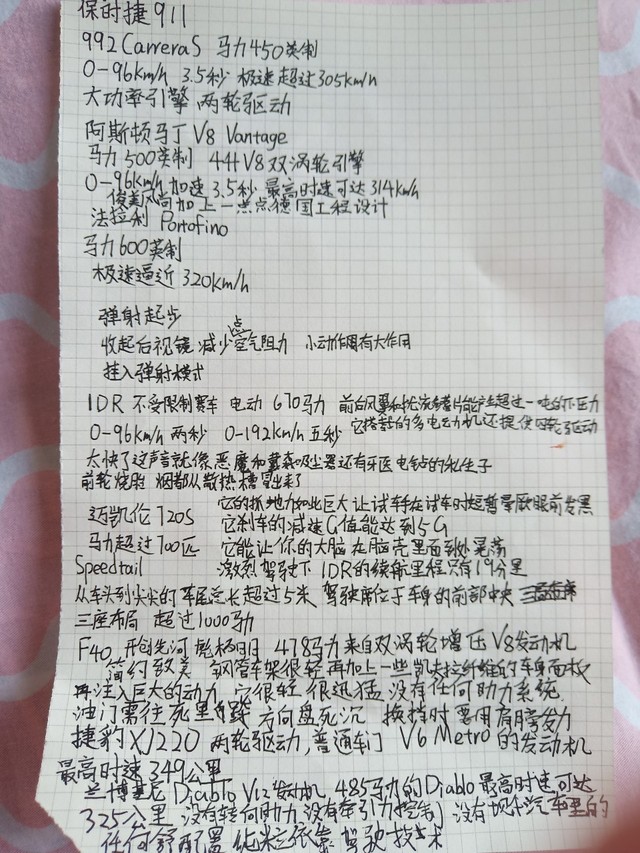 保时捷911
992 Carrera S 马力450英制
0-96km/h 3.5秒 极速超过305km/h
大功率引擎 两轮驱动
阿斯顿马丁 V8 Vantage
马力500英制 4升V8双涡轮引擎
0-96km/h加速3.5秒 最高时速可达314km/h
俊美风尚加上一点点德国工程设计
法拉利 Portofino
马力600英制
极速逼近320km/h
弹射起步
收起后视镜 减少点空气阻力 小动作拥有大作用
挂入弹射模式
IDR 不受限制赛车 电动 670马力 前后风翼和扰流片能产生超过一吨的下压力
0-96km/h 两秒 0-192km/h 五秒 它搭载的多电动机还提供四轮驱动
太快了这声音就像恶魔和戴森吸尘器还有牙医电钻的私生子
前轮烧胎 烟都从散热槽冒出来了
它的抓地力如此巨大 让试车手在试车时短暂晕厥眼前发黑
迈凯伦 720S 它刹车的减速G值能达到5G
马力超过700匹 它能让你的大脑在脑壳里面到处晃荡
Speedtail 激烈驾驶下 IDR的续航里程只有19分里
从车头到尖尖的车尾总长超过5米 驾驶席位于车身的前部中央
三座布局 超过1000马力
F40 开创先河 乾柄日月 478马力来自双涡轮增压V8发动机
简约致美 钢管车架很轻再加上一些凯夫拉纤维的车身面板
注入巨大的动力 它很轻 很迅猛 没有任何助力系统
油门需往死里踩 方向盘死沉 换挡时要用肩膀发力
捷豹XJ220 两轮驱动,普通车门 V6 Metro的发动机
最高时速349公里
兰博基尼 Diablo V12发动机 485马力的Diablo最高时速可达
325公里 没有转向助力 没有牵引力控制 没有现代汽车里的
任何舒配置 纯粹依靠驾驶技术